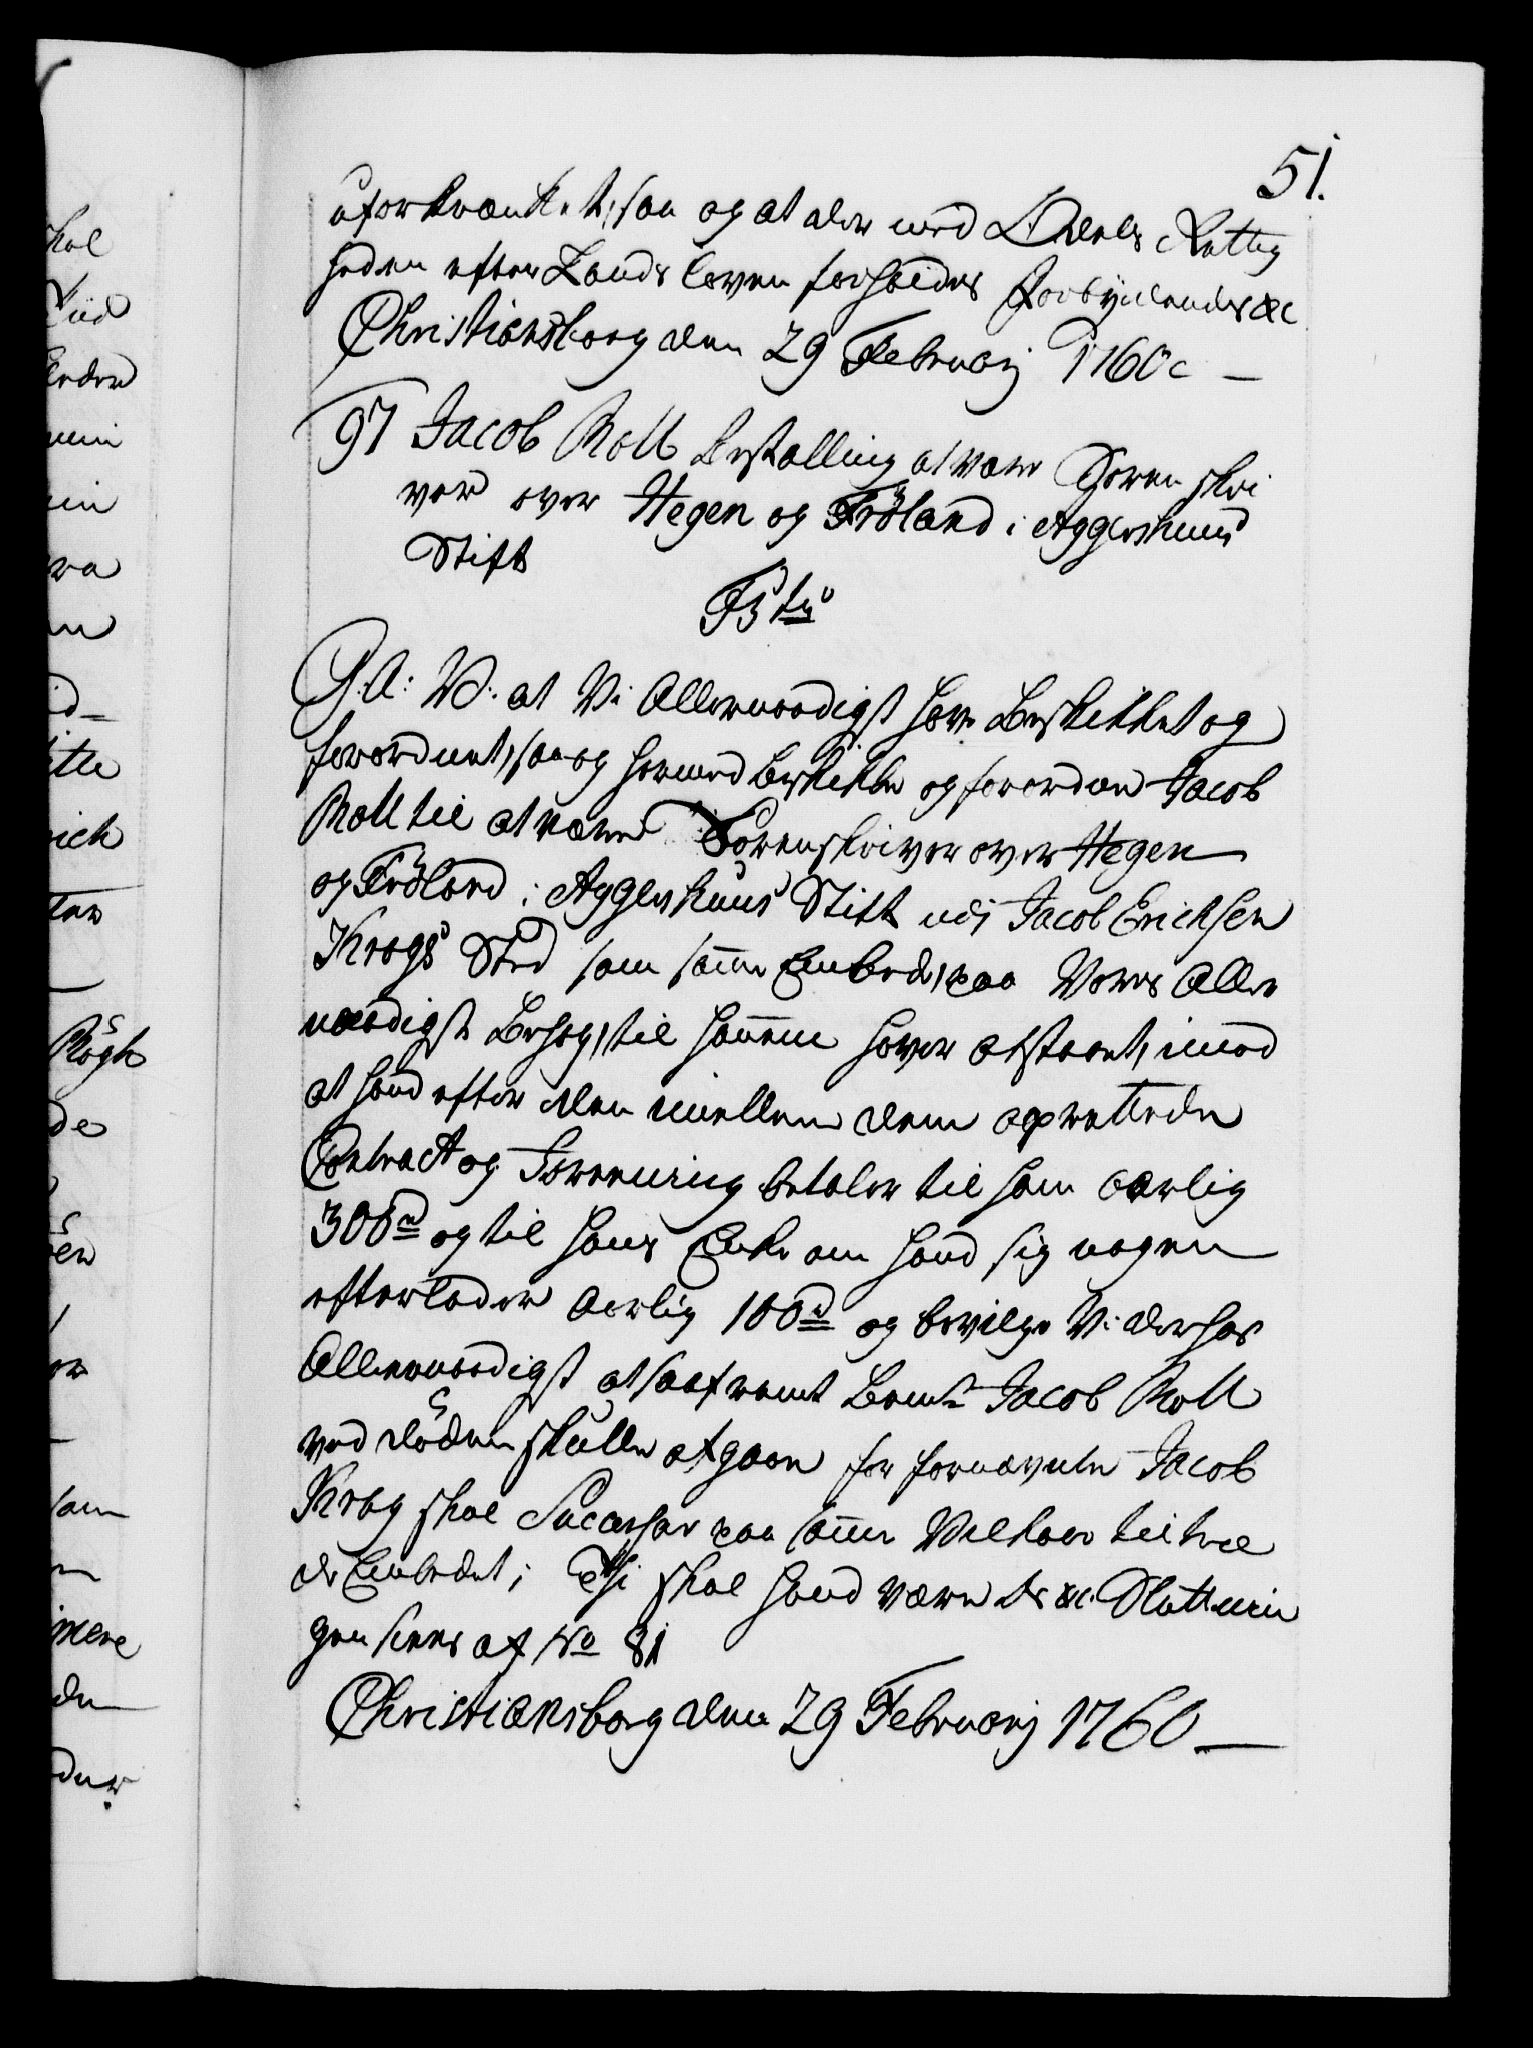 51.
uforkrænket, saa og at der med Odels Rettig
heden efter Lands Loven forholdes Forbydendes &c
Christiansborg den 29 Februarj 1760 c —
97 Jacob Roll Bestalling at være Soren skri
ver over Hegen og Fröland i Aggershuus
Stift
F5tus
G: A: V: at Vi Allernaadigst have Beskikket og
forordnet, saa og hermed beskikke og forordne Jacob
Roll til at være Sorenskriver over Hegen
og Fröland i Aggershuus Stift udj Jacob Erichsen
Krogs Sted som samme Embede, paa Vores Aller
naadigste Behag, til hannem haver afstaaet, imod
at hand efter den imellem dem oprettede
Contract og Forening betaler til ham aarlig
300rd og til hans Enke om hand sig nogen
efterlader Aarlig 100rd og bevilge Vi derhos
Allernaadigst at saafremt bemte Jacob Roll
ved döden skulle afgaae før fornævnte Jacob
Krog skal Successor paa samme Vilkaar tiltræ
de Embedet; Thi skal hand være Os &c. Slutnin
gen sees af No 81
Christiansborg den 29 Februarj 1760 —
hal
Tiid
min
ra
ich
Rögh
de
ön
som
mere